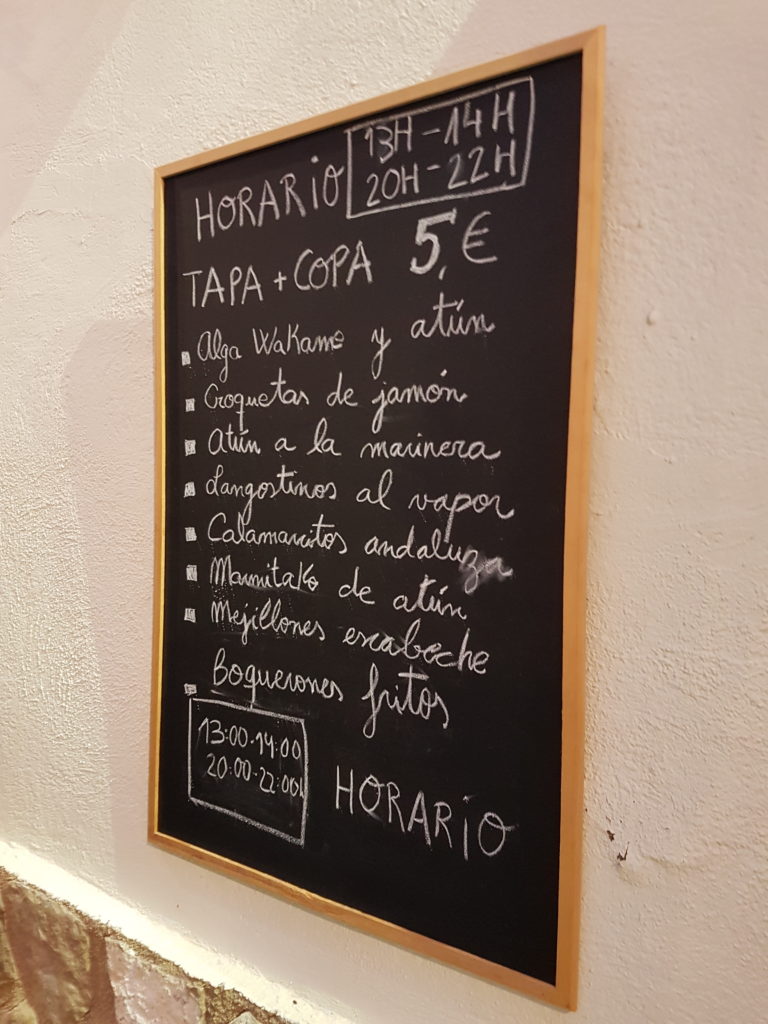 HORARIO
13H - 14H
20H - 22H
TAPA + COPA 5,€
Alga Wakame y atún
Croquetas de jamón
Atún a la marinera
Langostinos al vapor
Calamarcitos andaluza
Marmitako de atún
Mejillones escabeche
Boquerones fritos
13:00-14:00
20:00-22:00h
HORARIO